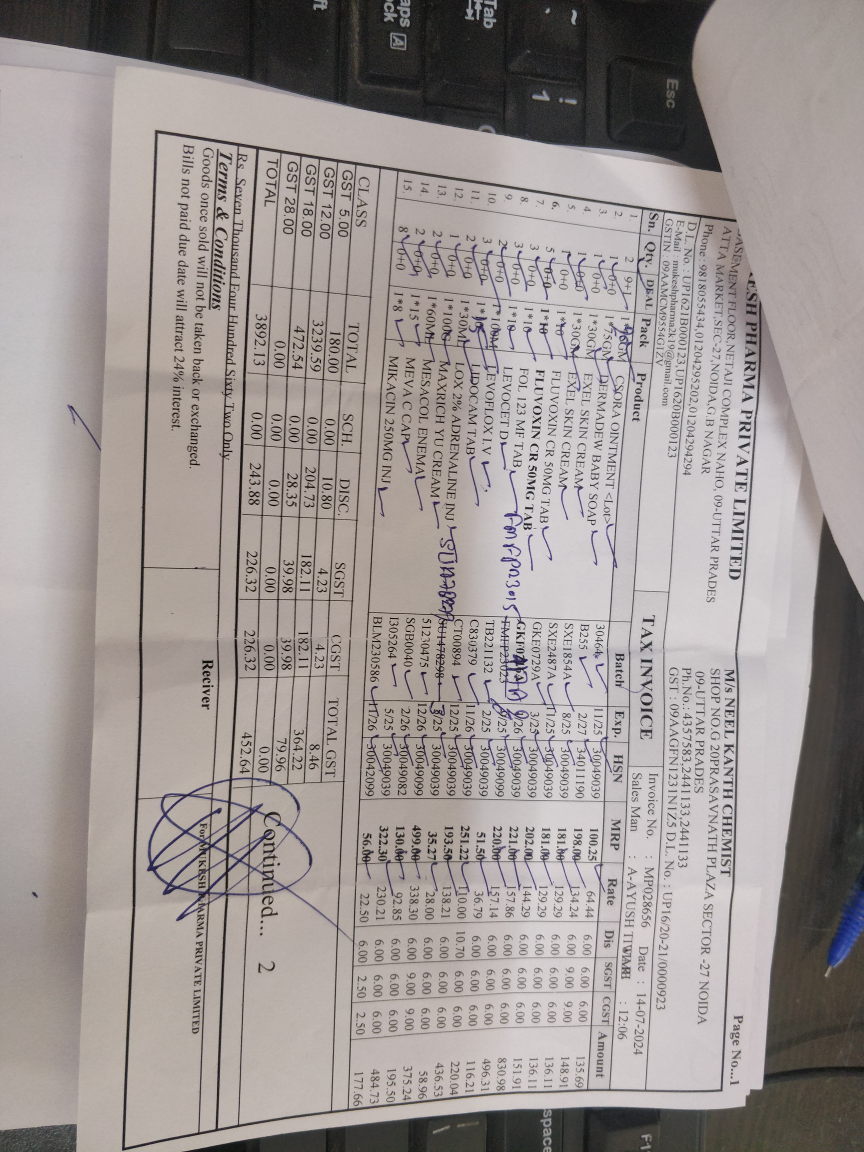 Page No...1
ESH PHARMA PRIVATE LIMITED M/s NEEL KANTH CHEMIST
BASEMENT FLOOR,NETAJI COMPLEX NAHO, 09-UTTAR PRADES SHOP NO.G 20PRASAVNATH PLAZA SECTOR -27 NOIDA
ATTA MARKET,SEC-27,NOIDA,G B NAGAR 09-UTTAR PRADES
Phone : 9818055434,01204295202,01204294294 Ph.No.: 4357583,2441133,2441133
D.L. No. : UP1621B000123,UP1620B000123 GST : 09AAGFN1231N1Z5 D.L. No. : UP16/20-21/0000923
E-Mail : mukeshpharma2k19@gmail.com
GSTIN : 09AAMCM9554G1ZV
TAX INVOICE Invoice No. : MP028656 Date : 14-07-2024
Sales Man : A-AYUSH TIWARI TIME : 12:06
Sn. Qty. DEAL Pack Product Batch Exp. HSN MRP Rate Dis SGST CGST Amount
1. 2 9+ CSORA OINTMENT <Lot> 30464 11/25 30049039 100.25 64.44 6.00 6.00 6.00 135.69
2. 1 0+0 1*75GM DERMADEW BABY SOAP B255 2/27 34011190 198.00 134.24 6.00 9.00 9.00 148.91
3. 1 0+0 1*30GM EXEL SKIN CREAM SXE1854A 8/25 30049039 181.00 129.29 6.00 6.00 6.00 136.11
4. 1 0+0 1*30GM EXEL SKIN CREAM SXE2487A 11/25 30049039 181.00 129.29 6.00 6.00 6.00 136.11
5. 1 0+0 1*10 FLUVOXIN CR 50MG TAB GKE0729A 3/25 30049039 202.00 144.29 6.00 6.00 6.00 151.91
6. 5 0+0 1*10 FLUVOXIN CR 50MG TAB 30049039 221.00 157.86 6.00 6.00 6.00 830.98
7. 3 0+0 1*10 FOL 123 MF TAB FMFP23025 30049099 220.00 157.14 6.00 6.00 6.00 496.31
8. 3 0+0 1*10 LEVOCET D TB221132 2/25 30049039 51.50 36.79 6.00 6.00 6.00 116.21
9. 2 0+0 1*100ML LEVOFLOX I.V C830379 11/26 30049039 251.22 110.00 10.70 6.00 6.00 220.04
10. 3 0+0 LIDOCAM TAB CT00894 12/25 30049039 193.50 138.21 6.00 6.00 6.00 436.53
11. 2 0+0 1*30ML LOX 2% ADRENALINE INJ SU1478298 30049039 35.27 28.00 6.00 6.00 6.00 58.96
12. 1 0+0 1*100G MAXRICH YU CREAM 51230475 12/26 30049099 499.00 338.30 6.00 9.00 9.00 375.24
13. 2 0+0 1*60ML MESACOL ENEMA SGB0040 2/26 30049082 130.00 92.85 6.00 6.00 6.00 195.50
14. 2 0+0 1*15 MEVA C CAP I305264 5/25 30049039 322.30 230.21 6.00 6.00 6.00 484.73
15. 8 0+0 1*8 MIKACIN 250MG INJ BLM230586 11/26 30042099 56.00 22.50 6.00 2.50 2.50 177.66
CLASS TOTAL SCH. DISC. SGST CGST TOTAL GST
GST 5.00 180.00 0.00 10.80 4.23 4.23 8.46
GST 12.00 3239.59 0.00 204.73 182.11 182.11 364.22
GST 18.00 472.54 0.00 28.35 39.98 39.98 79.96
GST 28.00 0.00 0.00 0.00 0.00 0.00 0.00
TOTAL 3892.13 0.00 243.88 226.32 226.32 452.64
Continued... 2
Rs. Seven Thousand Four Hundred Sixty Two Only
Terms & Conditions
Goods once sold will not be taken back or exchanged.
Bills not paid due date will attract 24% interest.
Reciver
For MUKESH PHARMA PRIVATE LIMITED
Esc
~
!
1
Tab
aps
ock
A
ft
F1
space